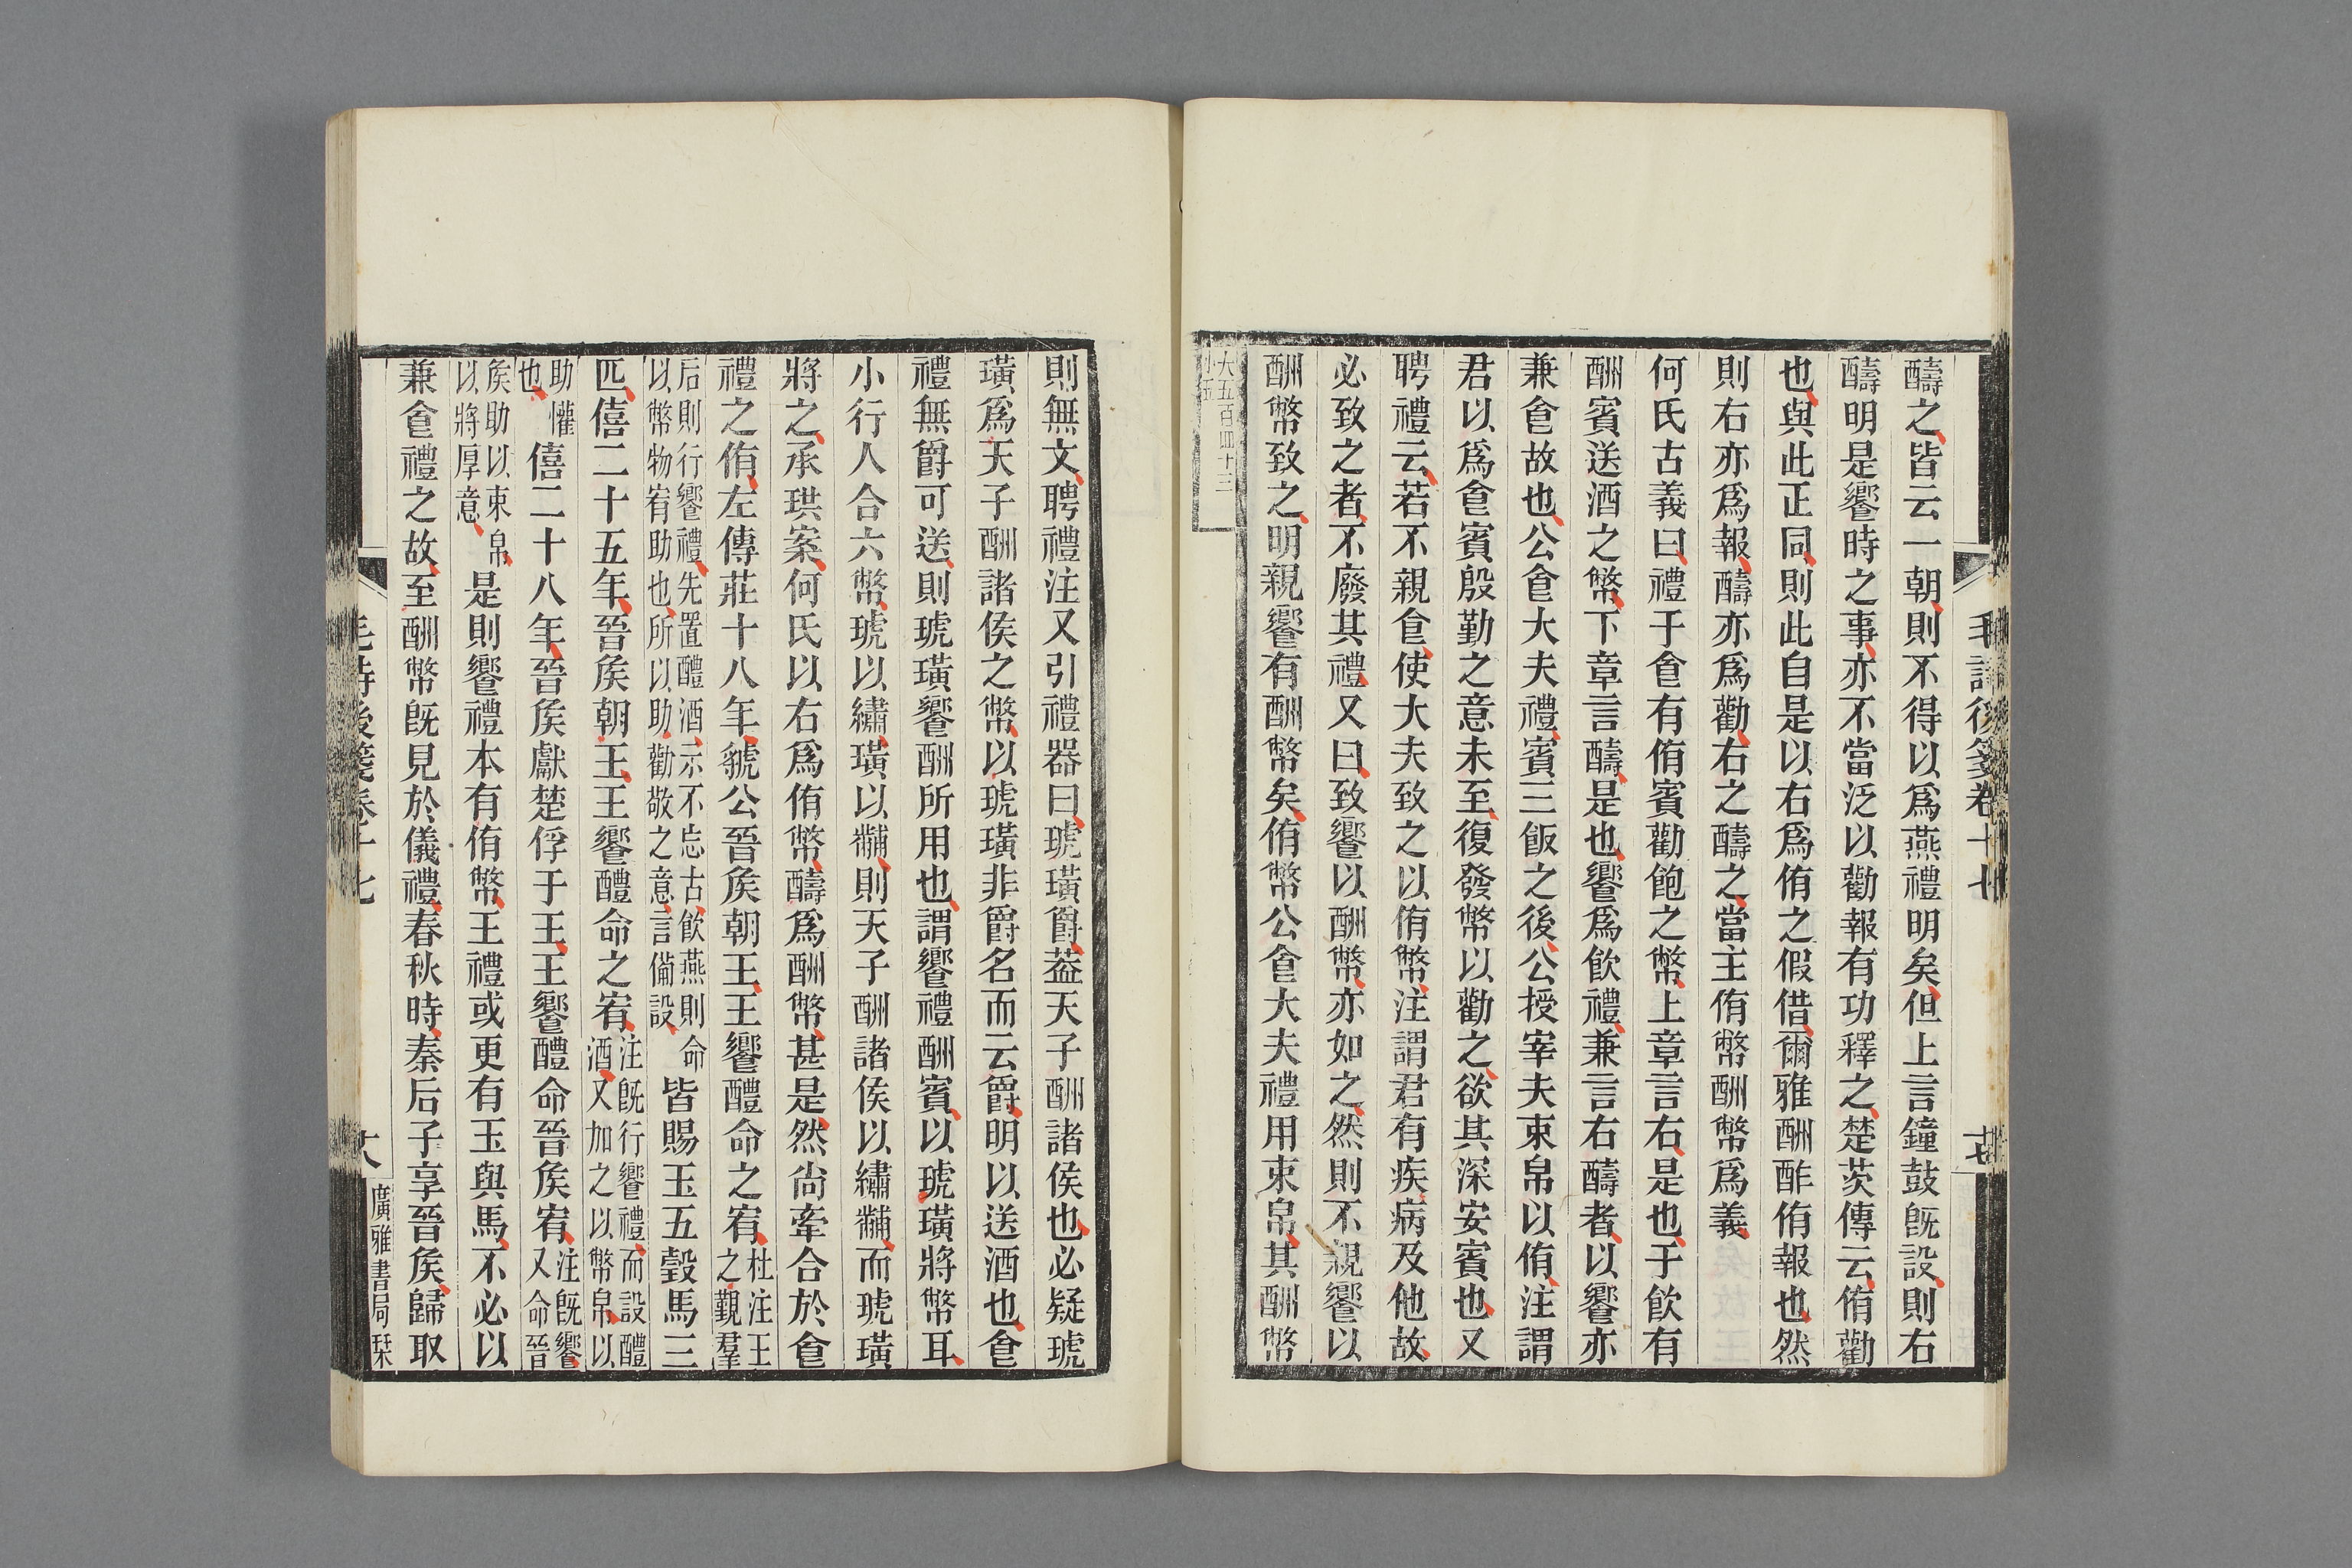 毛詩後箋卷十七
十七
醻之皆云一朝則不得以爲燕禮明矣但上言鐘鼓旣設則右
醻明是饗時之事亦不當泛以勸報有功釋之楚茨傳云侑勸
也與此正同則此自是以右爲侑之假借爾雅酬酢侑報也然
則右亦爲報醻亦爲勸右之醻之當主侑幣酬幣爲義
何氏古義曰禮于飠有侑賓勸飽之幣上章言右是也于飮有
酬賓送酒之幣下章言醻是也饗爲飮禮兼言右醻者以饗亦
兼飠故也公飠大夫禮賓三飯之後公授宰夫束帛以侑注謂
君以爲飠賓殷勤之意未至復發幣以勸之欲其深安賓也又
聘禮云若不親飠使大夫致之以侑幣注謂君有疾病及他故
必致之者不廢其禮又曰致饗以酬幣亦如之然則不親饗以
酬幣致之明親饗有酬幣矣侑幣公飠大夫禮用束帛其酬幣
大五百四十三
小五
則無文聘禮注又引禮器曰琥璜爵葢天子酬諸侯也必疑琥
璜爲天子酬諸侯之幣以琥璜非爵名而云爵明以送酒也飠
禮無爵可送則琥璜饗酬所用也謂饗禮酬賓以琥璜將幣耳
小行人合六幣琥以繡璜以黼則天子酬諸侯以繡黼而琥璜
將之承珙案何氏以右爲侑幣醻爲酬幣甚是然尙牽合於飠
禮之侑左傳莊十八年虢公晉矦朝王王饗醴命之宥杜注王之覲羣
后則行饗禮先置醴酒示不忘古飮燕則命以幣物宥助也所以助勸敬之意言僃設皆賜玉五瑴馬三
匹僖二十五年晉矦朝王王饗醴命之宥注旣行饗禮而設醴酒又加之以幣帛以
助懽也僖二十八年晉矦獻楚俘于王王饗醴命晉矦宥注旣饗又命晉
矦助以束帛以將厚意是則饗禮本有侑幣王禮或更有玉與馬不必以
兼飠禮之故至酬幣旣見於儀禮春秋時秦后子享晉矦歸取
毛詩後箋卷十七
十八
廣雅書局栞